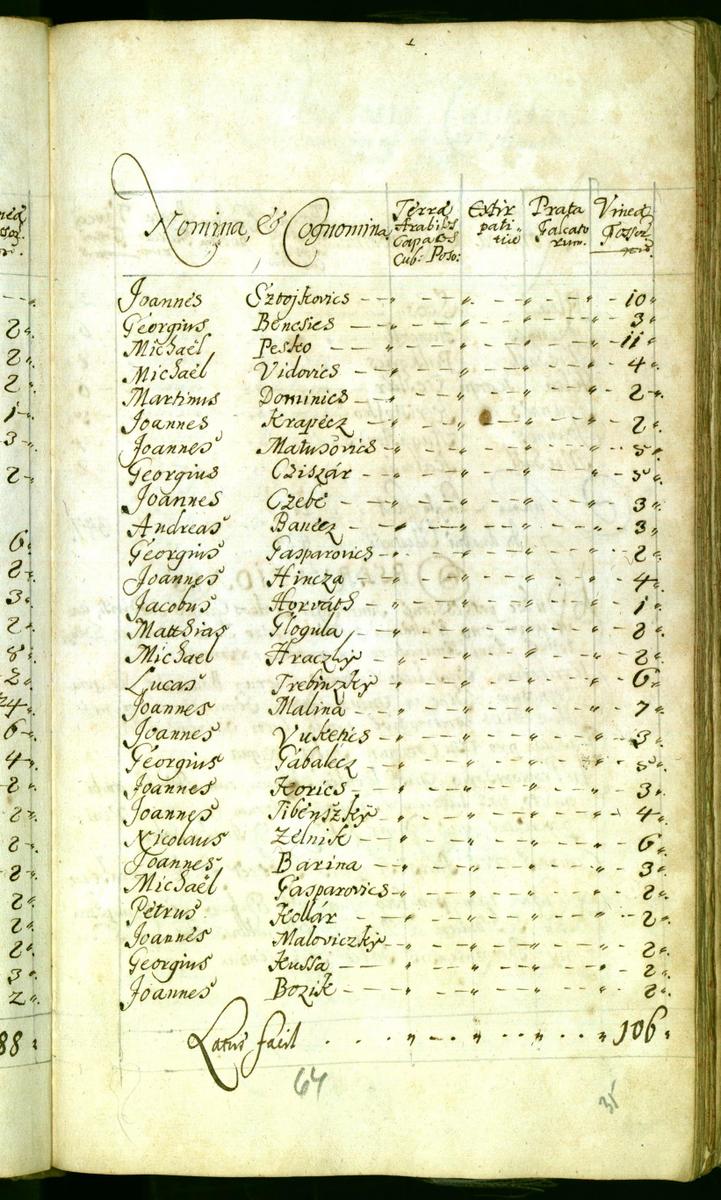 Nomina, & Cognomina. Terræ Arabiles Capaces Cub: Poso: Extirpatitiæ Prata Falcatorum. Vineæ Fossor
Joannes Sztojkovics 10
Georgius Bencsics 3
Michaël Pesko 11
Michaël Vidovics 4
Martinus Dominics 2
Joannes Krapecz 2
Joannes Matusovics 5
Georgius Csiszár 5
Joannes Czebe 3
Andreas Banecz 3
Georgius Gasparovics 2
Joannes Hincza 4
Jacobus Horváth 1
Matthias Glogula 2
Michael Hraczky 2
Lucas Trebinszky 6
Joannes Malina 7
Joannes Vuketics 3
Georgius Gabalecz 5
Joannes Korics 3
Joannes Tibenszky 4
Nicolaus Zelnik 6
Joannes Barina 3
Michaël Gasparovics 2
Petrus Kollár 2
Joannes Maloviczky 2
Georgius Kussa 2
Joannes Bozik 2
Latus facit 106
64